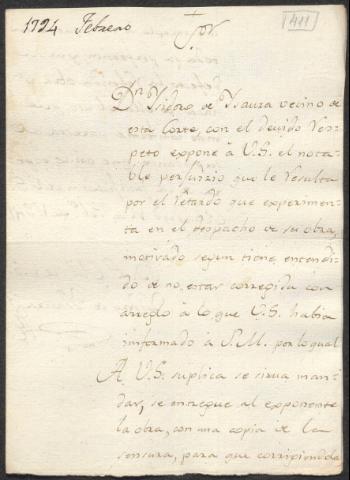 1794 Febrero
+
Sor.
411
Dn. Ysidro de Ysaura vecino de
esta Corte, con el devido Res-
peto expone à V.S. el nota-
ble perjuizio que le Resulta
por el Retardo que experimen-
ta en el despacho de su obra,
motivado segun tiene entendi-
do de no estar corregida con
arreglo à lo que V.S. habia
informado à S.M. por lo qual
A V.S. suplica se sirva man-
dar, se entregue al exponente
la obra, con una copia de la
sensura, para que corrigiendola